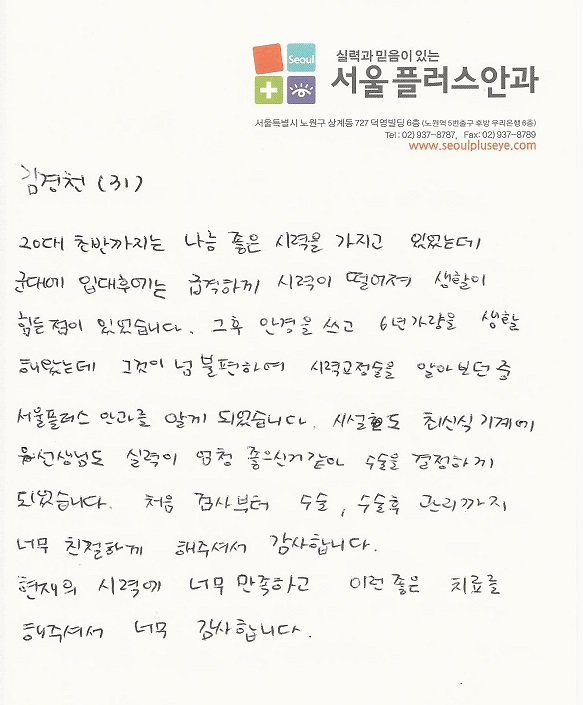 Seoul
실력과 믿음이 있는
서울플러스안과
서울특별시 노원구 상계동 727 덕영빌딩 6층 (노원역 5번출구 후방 우리은행 6층)
Tel : 02) 937-8787, Fax: 02) 937-8789
www.seoulpluseye.com
김경천 (31)
20대 초반까지는 나름 좋은 시력을 가지고 있었는데
군대에 입대후에는 급격하게 시력이 떨어져 생활이
힘든점이 있었습니다. 그후 안경을 쓰고 6년가량을 생활
해왔는데 그것이 넘 불편하여 시력교정술을 알아보던 중
서울플러스 안과를 알게 되었습니다. 시설도 최신식 기계에
선생님도 실력이 엄청 좋으신거같아 수술을 결정하게
되었습니다. 처음 검사부터 수술, 수술후 관리까지
너무 친절하게 해주셔서 감사합니다.
현재의 시력에 너무 만족하고 이런 좋은 치료를
해주셔서 너무 감사합니다.